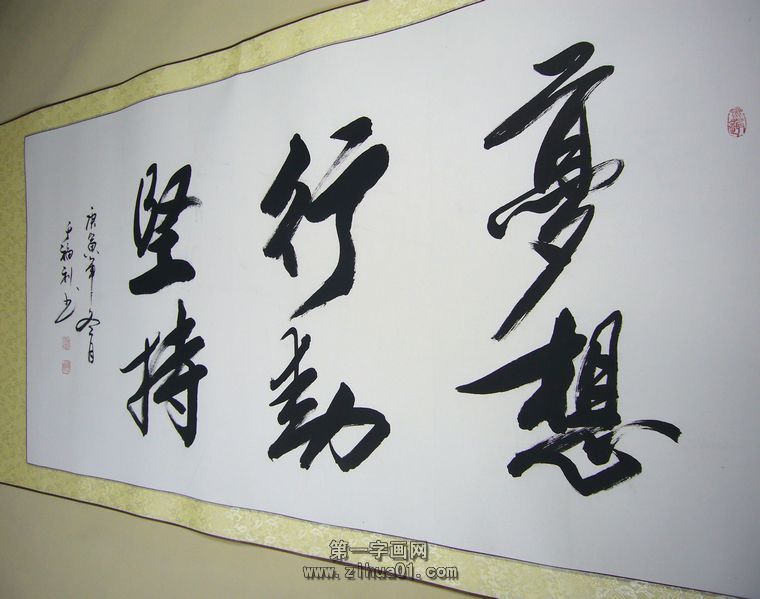 夢想
行動
堅持
庚寅年冬月
王福利书
第一字画网
www.zihua01.com